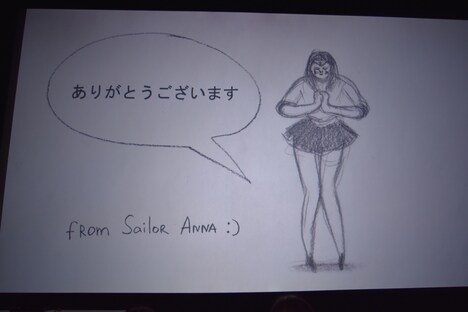 ありがとうございます
from Sailor Anna :)